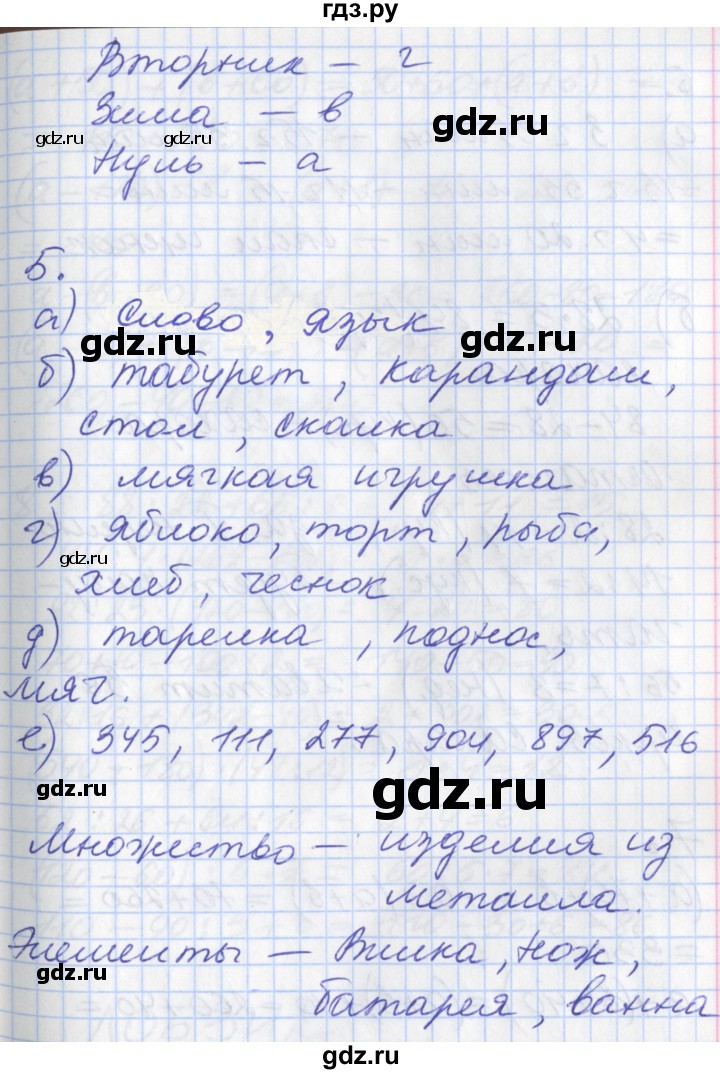 гдз.ру
Вторник – г
Зима – в
gdz.ru
gdz.ru
Нуль – а
5.
а) слово, язык
gdz.ru
gdz.ru
б) табурет, карандаш,
стол, скалка
в) мягкая игрушка
г) яблоко, торт, рыба,
gdz.ru
хлеб, чеснок
д) тарелка, поднос,
gdz.ru
мяч.
е) 345, 111, 277, 904, 897, 516
gdz.ru
gdz.ru
Множество – изделия из
металла.
Элементы – Вилка, нож,
gdz.ru
батарея, ванна
gdz.ru